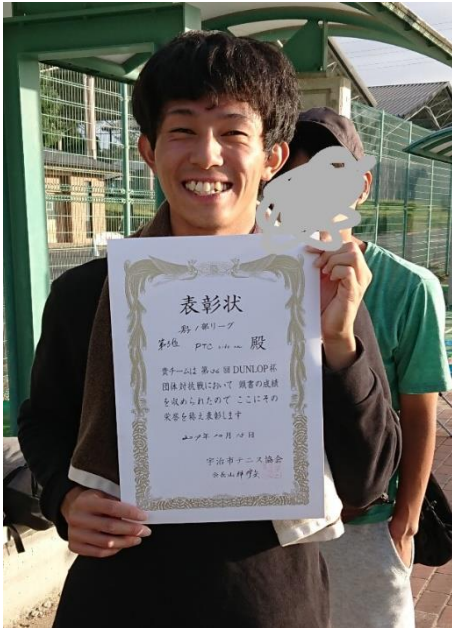 表彰状
男子1部リーグ
第3位 PTC 殿
貴チームは 第 回 DUNLOP杯
団体対抗戦において 頭書の成績
を収められたので ここにその
栄誉を称え表彰します
年10月 日
宇治市テニス協会
会長